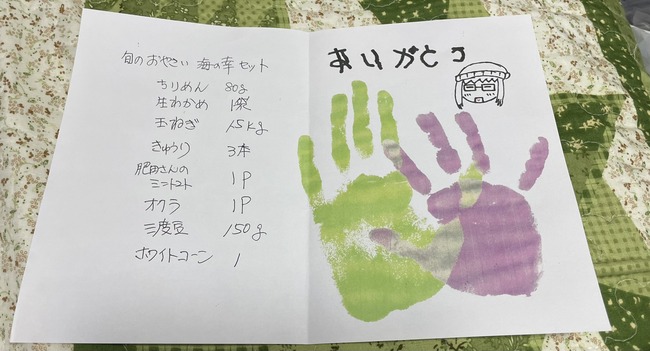 旬のおやさい 海の幸セット
ちりめん 80g
生わかめ 1袋
玉ねぎ 1.5kg
きゅうり 3本
肥田さんの
ミニトマト 1P
オクラ 1P
三度豆 150g
ホワイトコーン 1
ありがとう